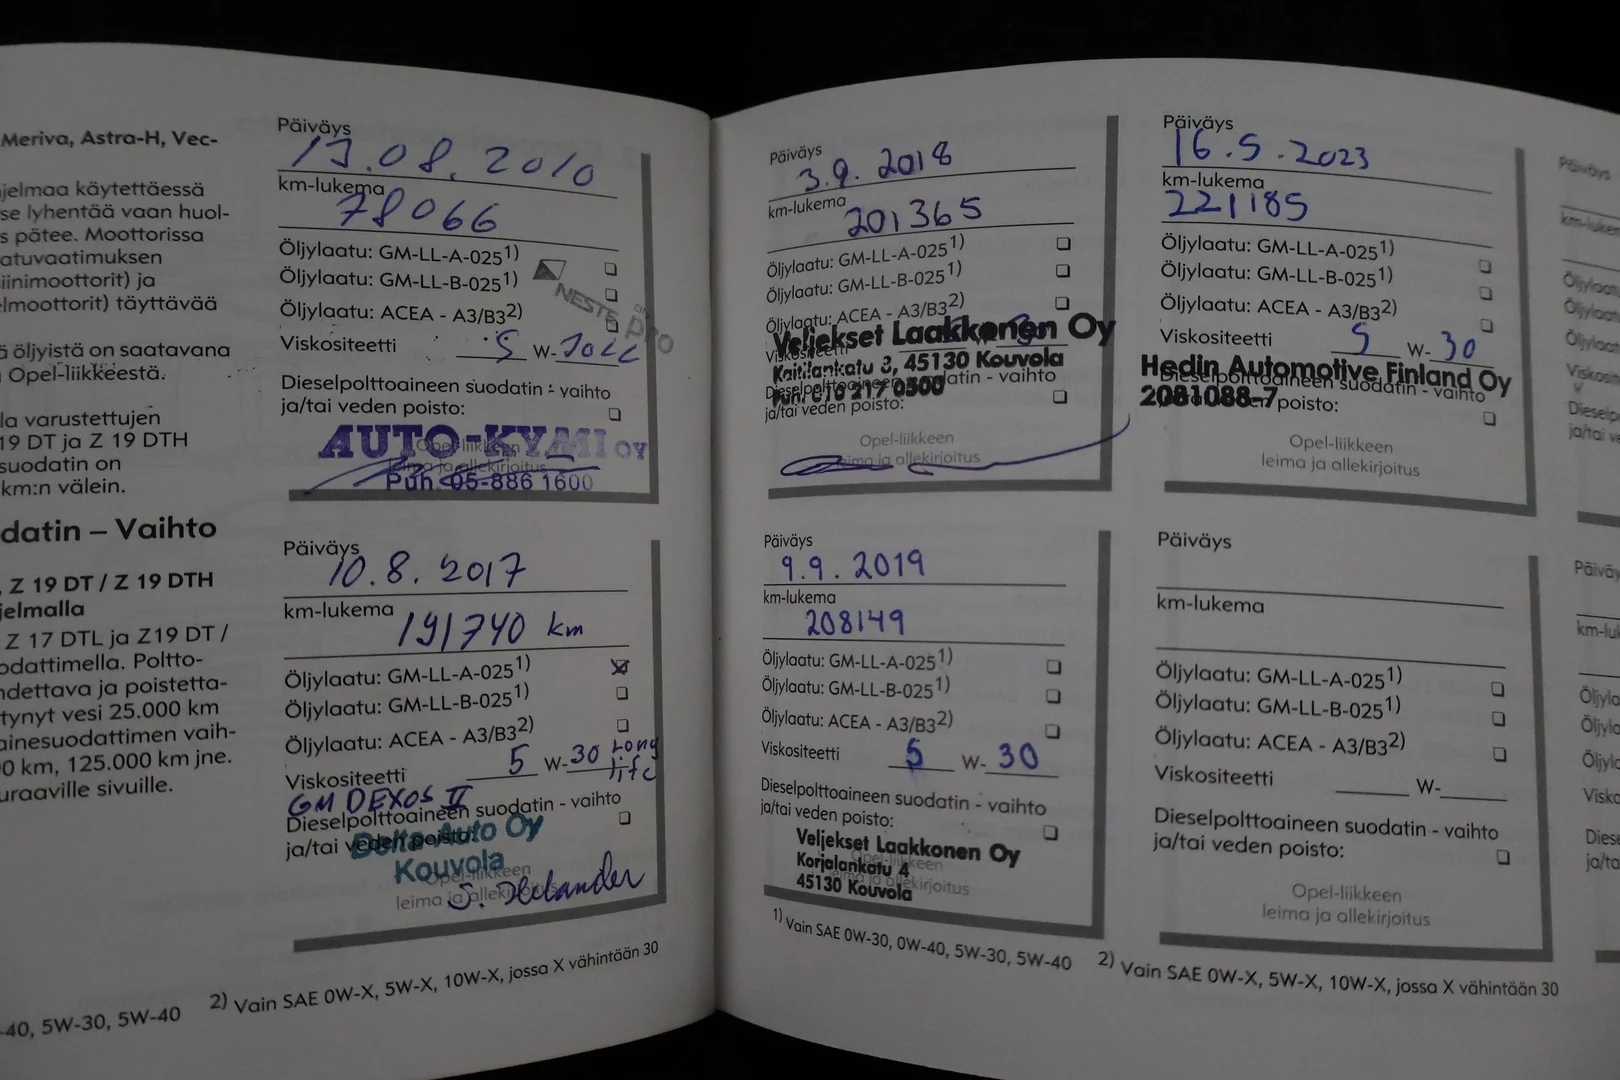 Meriva, Astra-H, Vec-
jelmaa käytettäessä
se lyhentää vaan huol-
s pätee. Moottorissa
atuvaatimuksen
iinimoottorit) ja
elmoottorit) täyttävää
ä öljyistä on saatavana
Opel-liikkeestä.
lla varustettujen
19 DT ja Z 19 DTH
suodatin on
km:n välein.
datin – Vaihto
, Z 19 DT / Z 19 DTH
jelmalla
Z 17 DTL ja Z19 DT /
odattimella. Poltto-
hdettava ja poistetta-
tynyt vesi 25.000 km
ainesuodattimen vaih-
0 km, 125.000 km jne.
euraaville sivuille.
-40, 5W-30, 5W-40
Päiväys
08. 2010
km-lukema
78066
Öljylaatu: GM-LL-A-0251)
Öljylaatu: GM-LL-B-0251)
Öljylaatu: ACEA - A3/B32)
NESTE pro
Viskositeetti 5 W-
Dieselpolttoaineen suodatin - vaihto
ja/tai veden poisto:
AUTO-KYMI OY
Opel-liikkeen
leima ja allekirjoitus
Puh. 05-886 1600
Päiväys
10.8. 2017
km-lukema
191740 km
Öljylaatu: GM-LL-A-0251)
Öljylaatu: GM-LL-B-0251)
Öljylaatu: ACEA - A3/B32)
Viskositeetti 5 W-30 Long life
GM DEXOS II
Dieselpolttoaineen suodatin - vaihto
ja/tai veden poisto:
Delta Auto Oy
Kouvola
Opel-liikkeen
leima ja allekirjoitus
2) Vain SAE 0W-X, 5W-X, 10W-X, jossa X vähintään 30
Päiväys
3.9. 2018
km-lukema
201365
Öljylaatu: GM-LL-A-0251)
Öljylaatu: GM-LL-B-0251)
Öljylaatu: ACEA - A3/B32)
Veljekset Laakkonen Oy
Viskositeetti
Kaitilankatu 3, 45130 Kouvola
Dieselpolttoaineen suodatin - vaihto
Puh. 010 217 0500
ja/tai veden poisto:
Opel-liikkeen
leima ja allekirjoitus
Päiväys
9.9. 2019
km-lukema
208149
Öljylaatu: GM-LL-A-0251)
Öljylaatu: GM-LL-B-0251)
Öljylaatu: ACEA - A3/B32)
Viskositeetti 5 W-30
Dieselpolttoaineen suodatin - vaihto
ja/tai veden poisto:
Veljekset Laakkonen Oy
Korjalankatu 4
45130 Kouvola
Opel-liikkeen
leima ja allekirjoitus
1) Vain SAE 0W-30, 0W-40, 5W-30, 5W-40
Päiväys
16.5.2023
km-lukema
221185
Öljylaatu: GM-LL-A-0251)
Öljylaatu: GM-LL-B-0251)
Öljylaatu: ACEA - A3/B32)
Viskositeetti 5 W-30
Hedin Automotive Finland Oy
Dieselpolttoaineen suodatin - vaihto
2081088-7
poisto:
Opel-liikkeen
leima ja allekirjoitus
Päiväys
km-lukema
Öljylaatu: GM-LL-A-0251)
Öljylaatu: GM-LL-B-0251)
Öljylaatu: ACEA - A3/B32)
Viskositeetti W-
Dieselpolttoaineen suodatin - vaihto
ja/tai veden poisto:
Opel-liikkeen
leima ja allekirjoitus
2) Vain SAE 0W-X, 5W-X, 10W-X, jossa X vähintään 30
Päiväys
km-luker
Öljylaatu
Öljylaatu
Öljylaatu
Viskosite
Diesel
ja/tai ve
Päiväy
km-luk
Öljyla
Öljyla
Öljyla
Visko
Diese
ja/ta